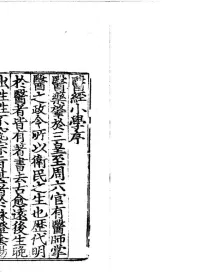 醫經小學序
醫藥肇於三皇至周六官有醫師掌
醫之政令所以衛民之生也歷代明
於醫者皆有著書去古愈遠後生晚